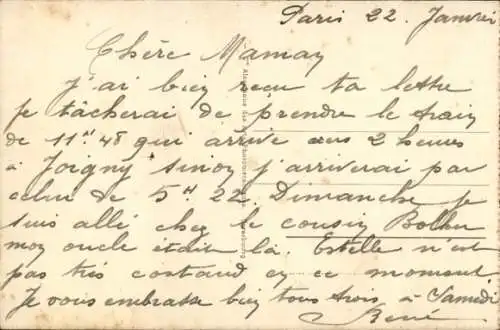 Paris 22 Janvier
Chère Maman
J'ai bien reçu ta lettre
je tâcherai de prendre le train
de 11H 48 qui arrive vers 2 heures
à Joigny sinon j'arriverai par
celui de 5H 22. Dimanche je
suis allé chez le cousin
mon oncle était là. Estelle n'est
pas très costaud en ce moment
Je vous embrasse bien tous trois à Samedi
René